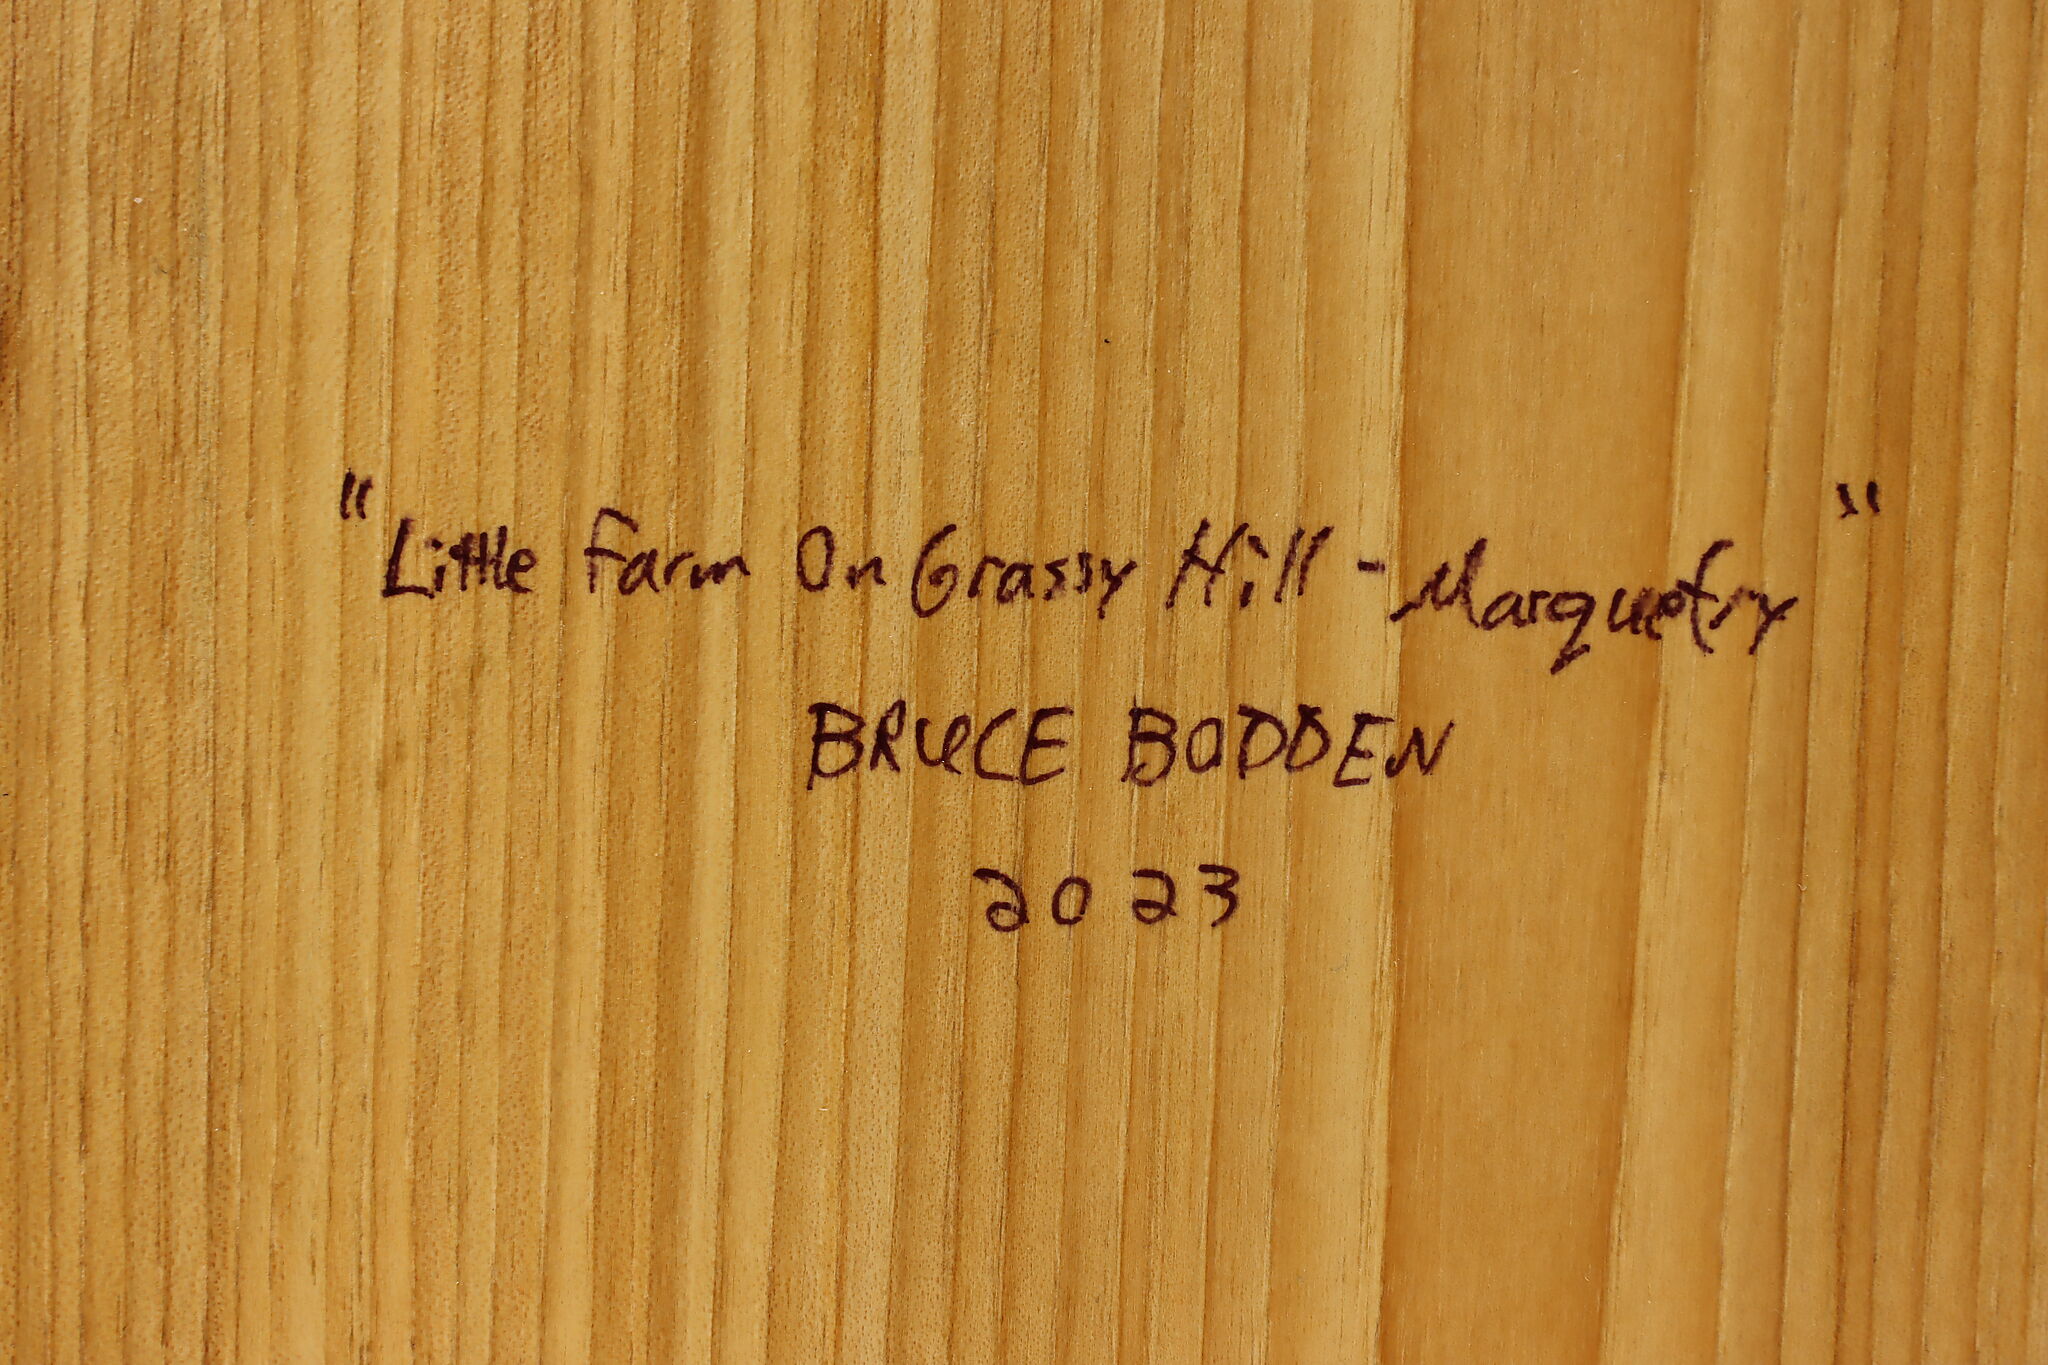 "Little Farm On Grassy Hill - Marquetry"
BRUCE BODDEN
2023